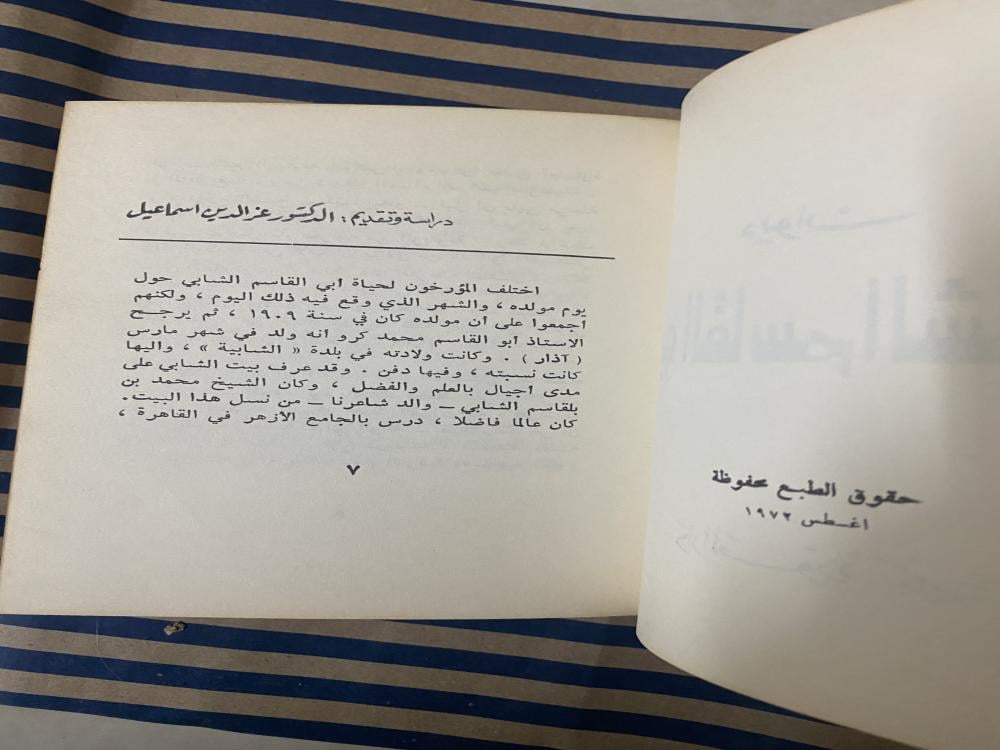 حقوق الطبع محفوظة
اغسطس ١٩٧٢
دراسة وتقديم: الدكتور عز الدين اسماعيل
اختلف المؤرخون لحياة أبي القاسم الشابي حول
يوم مولده ، والشهر الذي وقع فيه ذلك اليوم ، ولكنهم
أجمعوا على أن مولده كان في سنة ١٩٠٩ ، ثم يرجح
الاستاذ أبو القاسم محمد كرو أنه ولد في شهر مارس
( آذار ) . وكانت ولادته في بلدة « الشابية » ، واليها
كانت نسبته ، وفيها دفن . وقد عرف بيت الشابي على
مدى أجيال بالعلم والفضل ، وكان الشيخ محمد بن
بلقاسم الشابي – والد شاعرنا – من نسل هذا البيت .
كان عالما فاضلا ، درس بالجامع الأزهر في القاهرة ،
٧